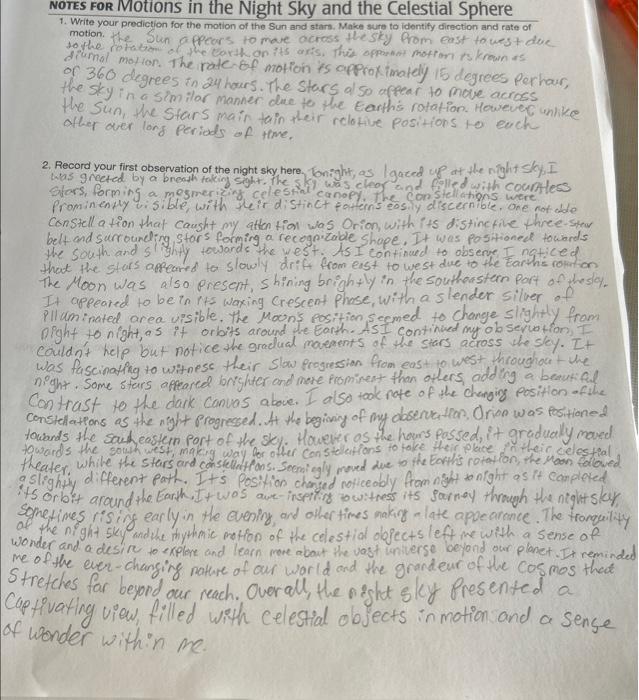 NOTES FOR Motions in the Night Sky and the Celestial Sphere
1. Write your prediction for the motion of the Sun and stars. Make sure to identify direction and rate of
motion. the Sun appears to move across the sky from east to west due
to the rotation of the Earth on its axis. This apparent motion is known as
diurnal motion. The rate of motion is approximately 15 degrees per hour,
or 360 degrees in 24 hours. The stars also appear to move across
the sky in a similar manner due to the Earth's rotation. However, unlike
the Sun, the stars maintain their relative positions to each
other over long periods of time.
2. Record your first observation of the night sky here. Tonight, as I gazed up at the night sky, I
was greeted by a breath taking sight. The sky was clear and filled with countless
stars, forming a mesmerizing celestial canopy. The constellations were
prominently visible, with their distinct patterns easily discernible. one
constellation that caught my attention was Orion, with its distinctive three-star
belt and surrounding stars forming a recognizable shape. It was positioned towards
the south and slightly towards the west. As I continued to observe, I noticed
that the stars appeared to slowly drift from east to west due to the Earth's rotation
The Moon was also present, shining brightly in the southeastern part of the sky.
It appeared to be in its waxing crescent phase, with a slender silver of
illuminated area visible. the Moon's position seemed to change slightly from
night to night, as it orbits around the Earth. As I continued my observation, I
couldn't help but notice the gradual movements of the stars across the sky. It
was fascinating to witness their slow progression from east to west throughout the
night. Some stars appeared brighter and more prominent than others, adding a beautiful
contrast to the dark canvas above. I also took note of the changing position of the
constellations as the night progressed. At the beginning of my observation, Orion was positioned
towards the southeastern part of the sky. However as the hours passed, it gradually moved
towards the southwest, making way for other constellations to take their place in their celestial
theater, while the stars and constellations. Seemingly moved due to the Earth's rotation, the Moon followed
a slightly different path. Its position changed noticeably from night to night as it completed
its orbit around the Earth. It was awe-inspiring to witness its journey through the night sky,
sometimes rising early in the evening, and other times making a late appearance. The tranquility
of the night sky and the rhythmic motion of the celestial objects left me with a sense of
wonder and a desire to explore and learn more about the vast universe beyond our planet. It reminded
me of the ever-changing nature of our world and the grandeur of the cosmos that
stretches far beyond our reach. Overall, the night sky presented a
captivating view, filled with celestial objects in motion and a sense
of wonder within me.